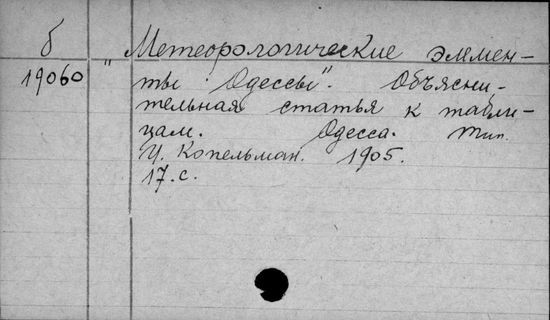 б
19060
„Метеорологические элемен-
ты Одессы". Объясни-
тельная статья к табли-
цам. Одесса. Тип.
И. Копельман. 1905.
17.с.